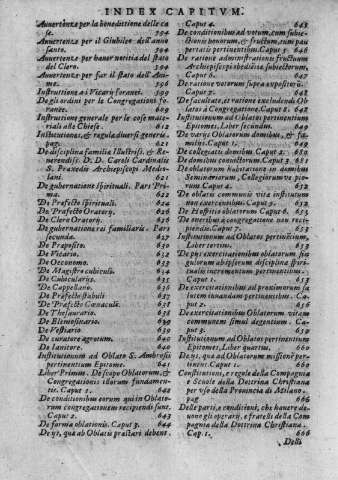 INDEX CAPITVM.
Auuertenze per la benedittione delle ca
se. 394
Auuertenze per il Giubileo dell'anno
santo. 394
Auuertenze per hauer notitia del stato
del Clero. 394
Auuertenze per far il stato dell'Ani-
me. 396
Instructione a i Vicarij foranei. 399
De gli ordini per la Congregationi fo
ranee. 609
Instruttioni generale per le cose mate-
riali alle Chiese. 612
Institutiones, & regula diuersi generis.
pag. 621
De disciplina familiæ Illustriss. & Re-
uerendiss. D. D. Caroli Cardinalis
S. Praxedis Archiepiscopi Medio-
lani. 621
De gubernatione spirituali. Pars Pri-
ma. 622
De Præfecto spirituali. 624
De Præfecto Oratorij. 624
De Clero Oratorij. 625
De gubernatione rei familiaris. Pars
secunda. 627
De Præposito. 630
De Vicario. 632
De Oeconomo. 633
De Magistro cubiculi. 634
De Cubicularijs. 635
De Cappellano. 635
De Præfecto stabuli 637
De Præfecto Cœnaculi 637
De Thesaurario. 638
De Elemosinario. 638
De Vestiario 639
De curatore ægrotum. 640
De Ianitore. 640
Institutionum ad Oblato S. Ambrosij
pertinentium Epitome. 641
Liber Primus. De supe Oblatorum, &
Congregationis illorum fundamen-
tis. Caput 1. 642
De conditionibus eorum qui in Oblato-
rum congregationem recipiendi sunt.
Caput 2. 643
De forma oblationis. Caput 3. 644
De ijs, qua ab Oblatis præstari debent.
Caput 4. 645
De conditionibus ad votum, cum subie-
ctionis honorum, & fructuum, tum pau
pertatis pertinentibus. Caput 5 646
De ratione administrationis fructuum
Archiepiscopi obedientiæ subiectorum,
Caput 6. 647
De ratione votorum supra expositorũ.
Caput 7 648
De facultate, et ratione excludendi Ob
latos à Congregatione. Caput 8. 648
Institutionum ad Oblatos pertinentium
Epitomes, Liber secundus. 649
De varijs Oblatorum domibus, & fa-
milijs. Caput 1. 649
De collegiatis domibus. Caput 2. 650
De domibus conuictorum. Caput 3. 651
De oblatorum habitatione in domibus
Seminariorum, Collegiorum ve pau-
perum Caput 4. 652
De oblatis communis vitæ institutum
non exercentibus Caput 5. 653
De Hospitijs oblatorum Caput 6. 653
De mercibus à congregatione non reci-
piendis. Caput 7. 653
Institutionum ad Oblatos pertinentium,
Liber tertius.
De pijs exercitationibus oblatorum sin-
gulorum absque eorum disciplina spiri-
tualis incrementum pertinentibus.
Caput 1. 653
De exercitationibus ad proximorum sa
lutem iuuandam pertinentibus. Ca-
put 2. 656
De exercitationibus Oblatorum vitam
communem simul degentium. Ca-
put 3. 659
Institutionum ad Oblatos pertinentium
Epitomes, Liber quartus. 660
De ijs, qua ad Oblatorum missione per-
tinent. Caput 1. 660
Constitutioni, e regole della Compagnia
e Scuole della Dottrina Christiana
per vso della Prouincia di Milano.
pag 666
Delle parti, e conditioni, che hauere de-
uono gli operarij, e fratelli della Com
pagnia della Dottrina Christiana.
Cap. 1. 666
Delli